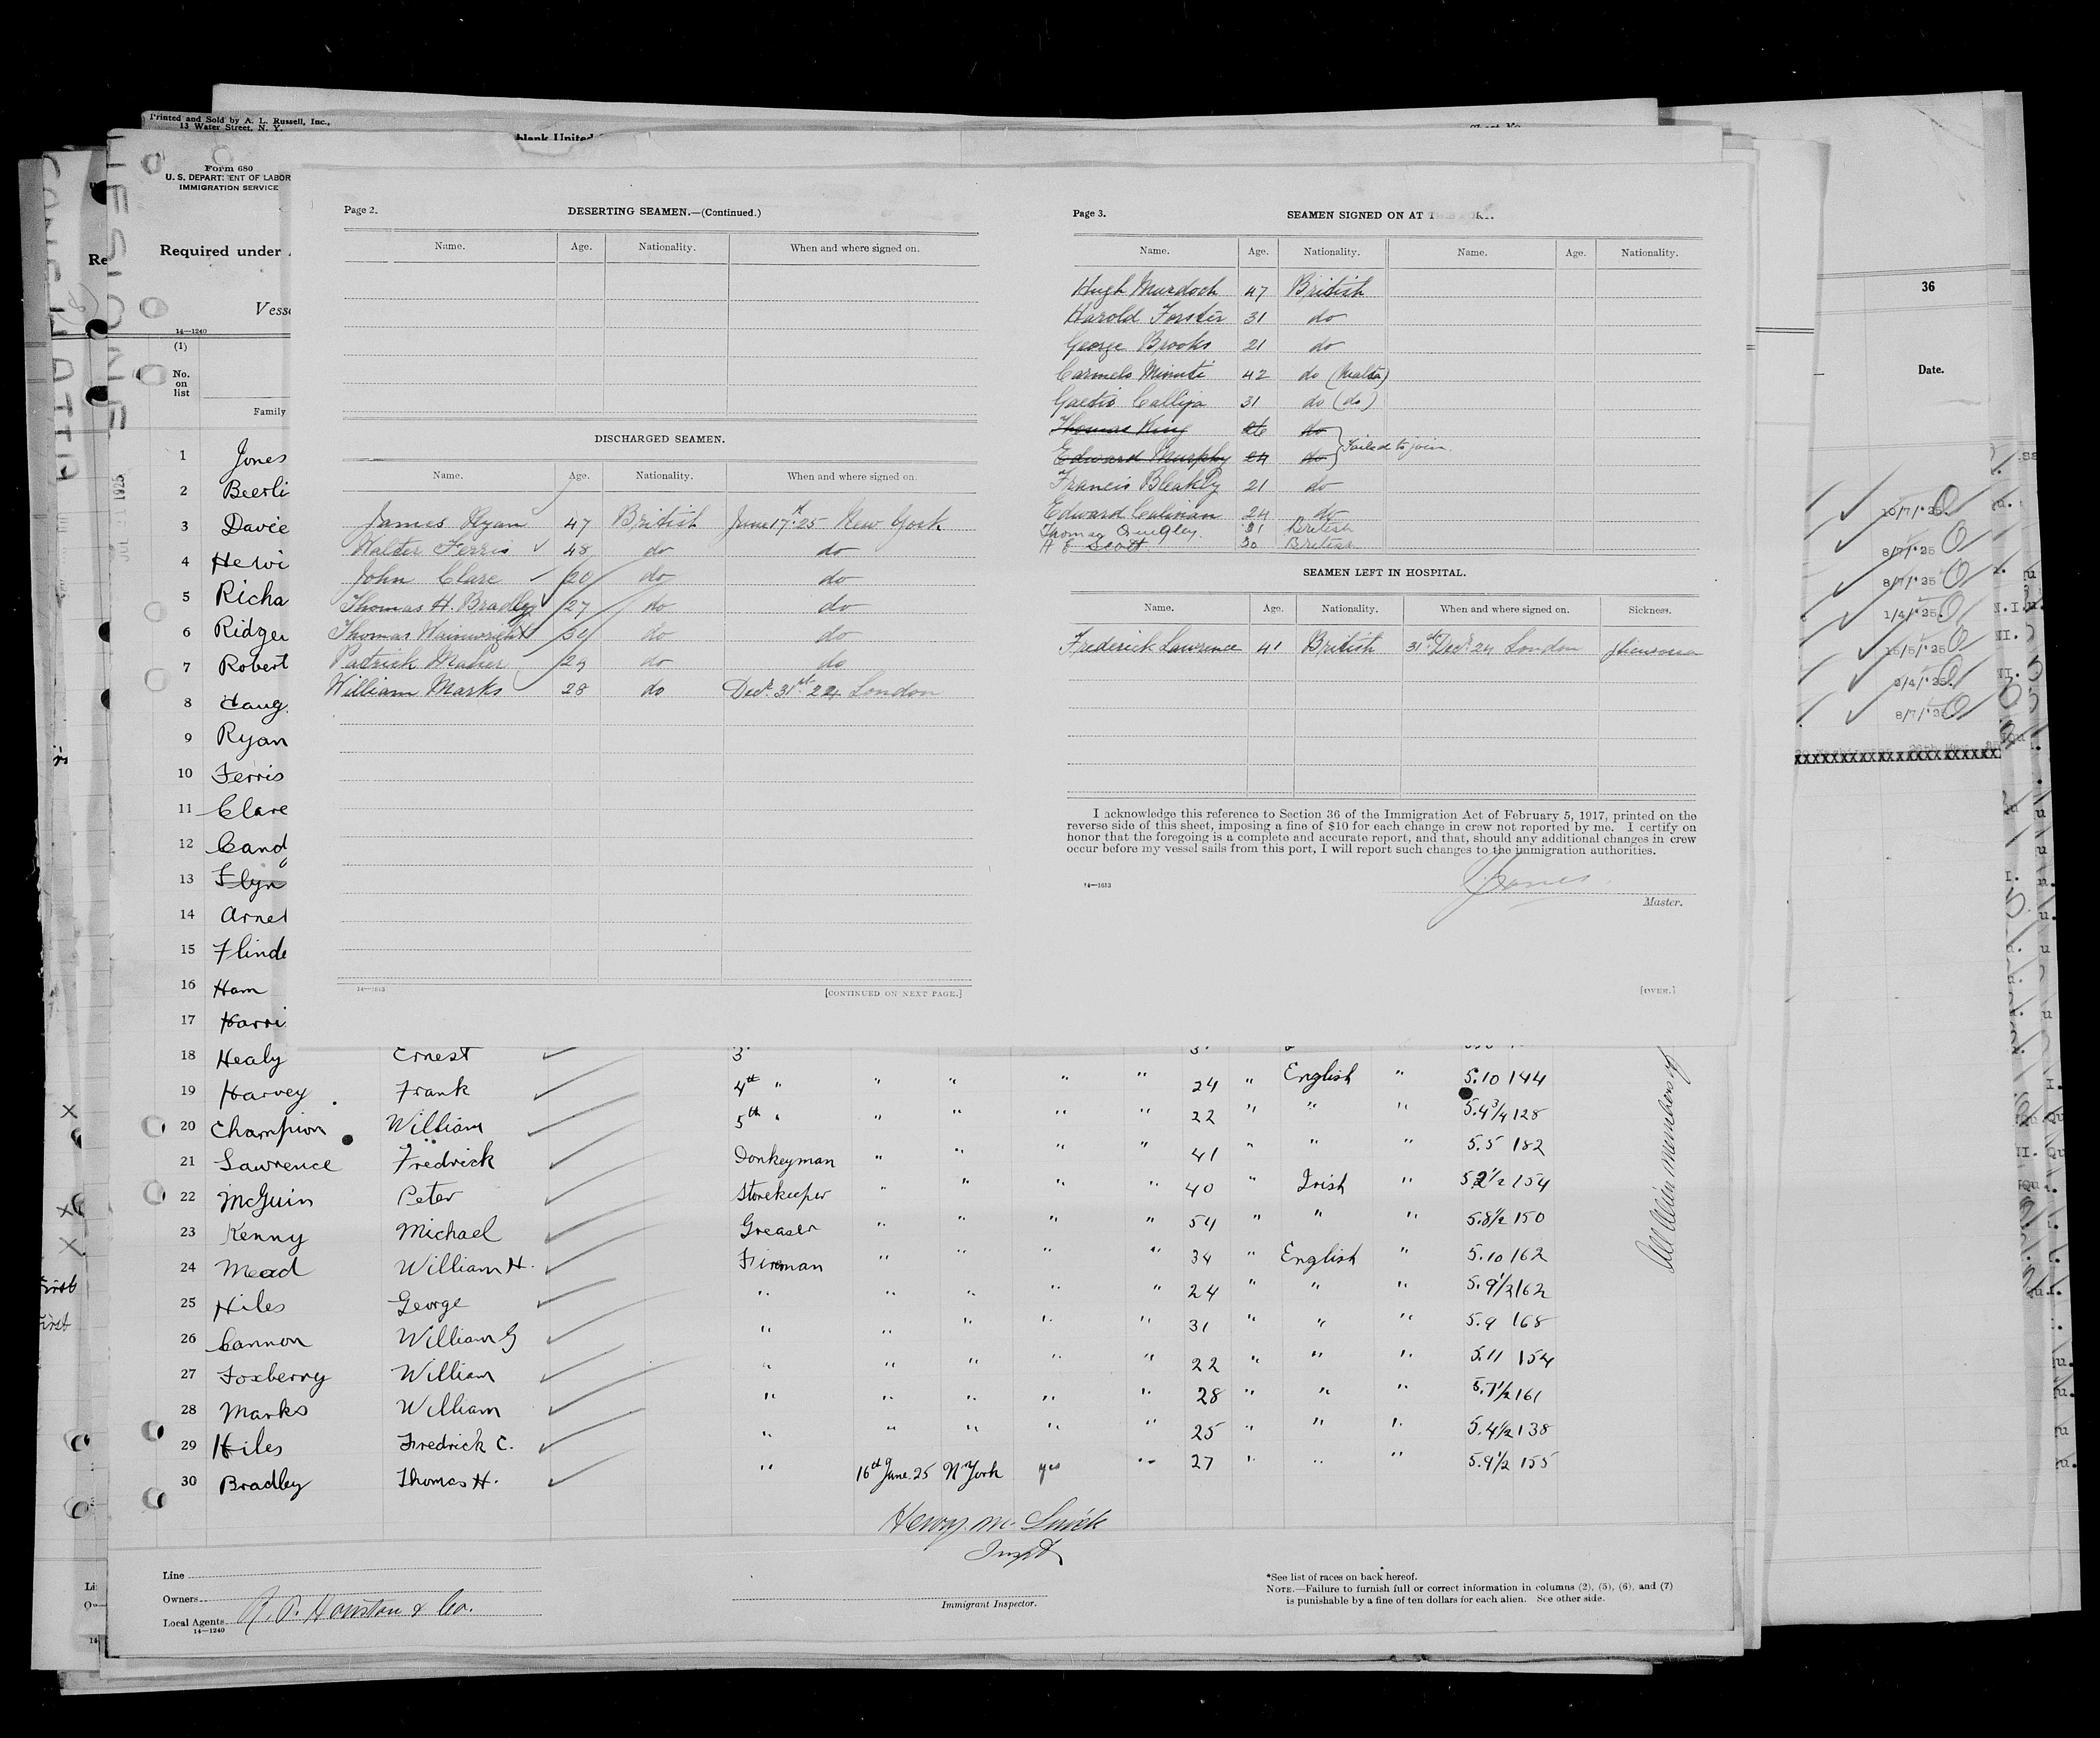 Printed and Sold by A. L. Russell, Inc.,
13 Water Street, N. Y.
blank United
Form 680
U. S. DEPARTMENT OF LABOR
IMMIGRATION SERVICE
Required under
Vess
14—1240
(1)
No.
on
list
Family
1 Jones
2 Beerli
3 Davie
4 Hewi
5 Richa
6 Ridge
7 Robert
8
9 Ryan
10 Ferris
11 Clare
12 Cand
13 Flyn
14 Arne
15 Flinde
16 Ham
17 Harri
Page 2.
DESERTING SEAMEN.—(Continued.)
Name. Age. Nationality. When and where signed on.
DISCHARGED SEAMEN.
Name. Age. Nationality. When and where signed on.
James Ryan 47 British June 17th 25 New York
Walter Ferris 48 do do
John Clare 20 do do
Thomas H. Bradley 27 do do
Thomas Wainwright 30 do do
Patrick Maher 29 do do
William Marks 28 do Decr. 31st 24 London
14—1613
[CONTINUED ON NEXT PAGE.]
Page 3.
SEAMEN SIGNED ON AT
Name. Age. Nationality. Name. Age. Nationality.
Hugh Murdoch 47 British
Harold Forster 31 do
George Brooks 21 do
Carmelo Minuti 42 do (Malta)
Calliga 31 do (do)
Thomas King 26 do
Edward Murphy 24 do
Failed to join
Francis Bleakly 21 do
Edward Culinan 24 do
Thomas Quigley. 31 British
H E Scott 30 British
SEAMEN LEFT IN HOSPITAL.
Name. Age. Nationality. When and where signed on. Sickness.
Frederick Lawrence 41 British 31st Decr. 24 London
I acknowledge this reference to Section 36 of the Immigration Act of February 5, 1917, printed on the
reverse side of this sheet, imposing a fine of $10 for each change in crew not reported by me. I certify on
honor that the foregoing is a complete and accurate report, and that, should any additional changes in crew
occur before my vessel sails from this port, I will report such changes to the immigration authorities.
14—1613
Jones
Master.
[OVER.]
18 Healy Ernest
19 Harvey Frank 4th " " " " " 24 " English " 5.10 144
20 Champion William 5th " " " " " 22 " " " 5.4 3/4 128
21 Lawrence Fredrick Donkeyman " " " " 41 " " " 5.5 182
22 McGuin Peter Storekeeper " " " " 40 " Irish " 5 2 1/2 154
23 Kenny Michael Greaser " " " " 54 " " " 5.8 1/2 150
24 Mead William H. Fireman " " " " 34 " English " 5.10 162
25 Hiles George " " " " " 24 " " " 5.9 1/2 162
26 Cannon William G " " " " " 31 " " " 5.9 168
27 Foxberry William " " " " " 22 " " " 5.11 154
28 Marks William " " " " " 28 " " " 5.7 1/2 161
29 Hiles Fredrick C. " " " " " 25 " " " 5.4 1/2 138
30 Bradley Thomas H. " 16th June 25 N York yes " 27 " " " 5.9 1/2 155
All Alien members of
Line
Owners
Local Agents R. P. Houston & Co.
14—1240
Immigrant Inspector.
*See list of races on back hereof.
NOTE.—Failure to furnish full or correct information in columns (2), (5), (6), and (7)
is punishable by a fine of ten dollars for each alien. See other side.
36
Date.
10/7/'25
8/7/'25
8/7/'25
1/4/'25
15/5/'25
8/7/'25